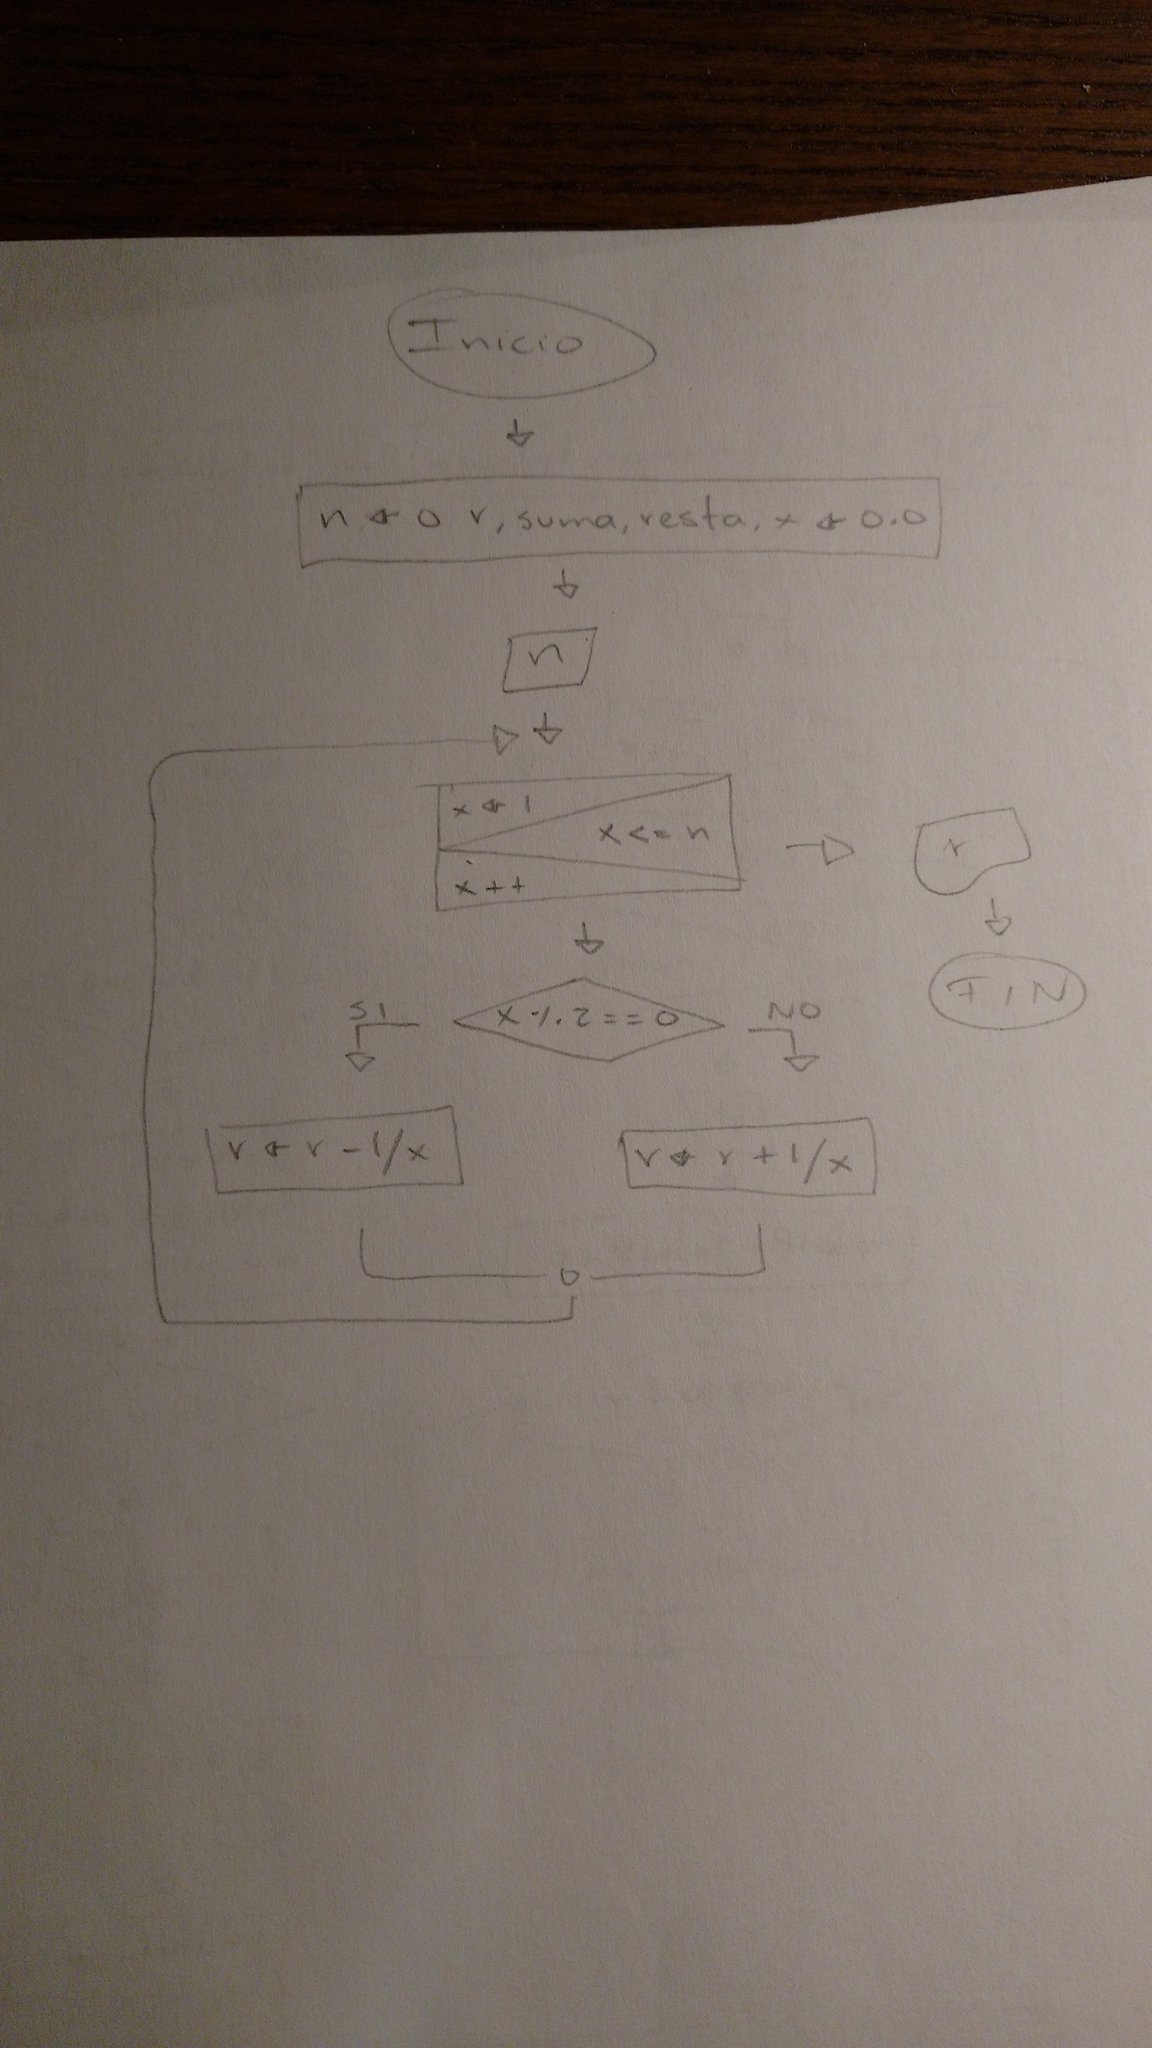 Inicio
n ← 0 r, suma, resta, x ← 0.0
n
x ← 1
x <= n
x++
r
FIN
x % 2 == 0
SI
NO
r ← r - 1/x
r ← r + 1/x